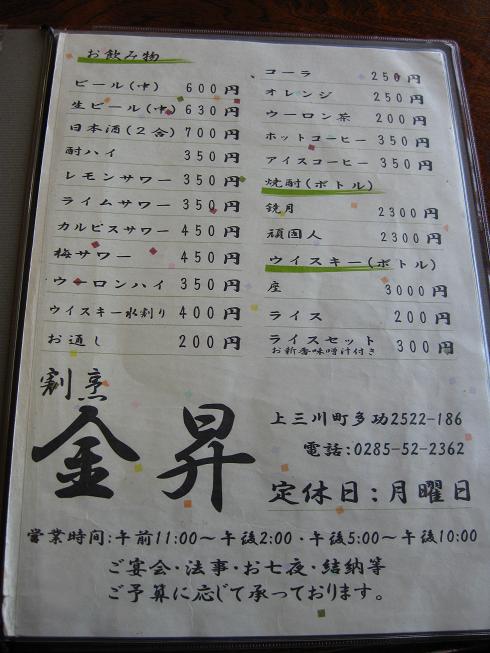 お飲み物
ビール(中) 600円
生ビール(中) 630円
日本酒(2合) 700円
酎ハイ 350円
レモンサワー 350円
ライムサワー 350円
カルピスサワー 450円
梅サワー 450円
ウーロンハイ 350円
ウイスキー水割り 400円
お通し 200円
コーラ 250円
オレンジ 250円
ウーロン茶 200円
ホットコーヒー 350円
アイスコーヒー 350円
焼酎(ボトル)
鏡月 2300円
頑固人 2300円
ウイスキー(ボトル)
座 3000円
ライス 200円
ライスセット 300円
お新香味噌汁付き
割烹
金昇
上三川町多功2522-186
電話:0285-52-2362
定休日:月曜日
営業時間:午前11:00～午後2:00・午後5:00～午後10:00
ご宴会・法事・お七夜・結納等
ご予算に応じて承っております。